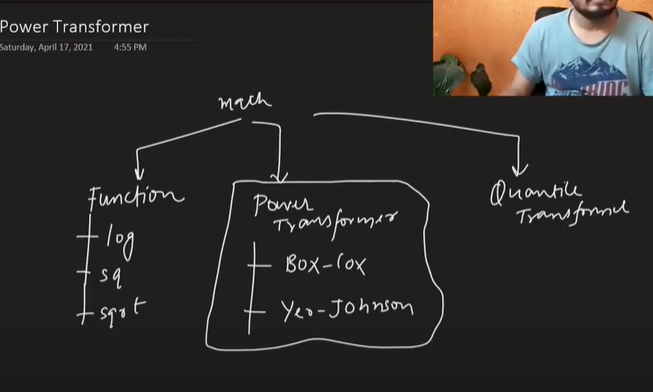 Power Transformer
Saturday, April 17, 2021 4:55 PM
Function
log
sq
sqrt
Power
Transformer
Box-Cox
Yeo-Johnson
Quantile